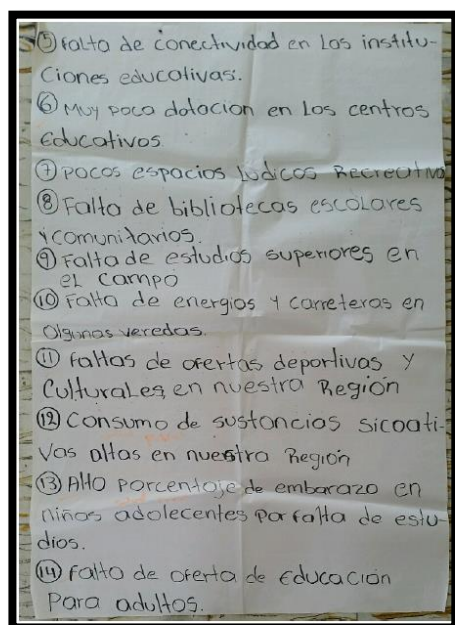 ⑤ falta de conectividad en Los institu-
ciones educativas.
⑥ Muy poca dotacion en Los centros
Educativos
⑦ pocos espacios Lúdicos Recreativo
⑧ Falta de bibliotecas escolares
y comunitarios.
⑨ Falta de estudios superiores en
el campo
⑩ Falta de energias y carreteras en
algunas veredas.
⑪ faltas de ofertas deportivas y
Culturales en nuestra Región
⑫ Consumo de sustancias sicoati-
vas altas en nuestra Región
⑬ Alto porcentaje de embarazo en
niñas adolecentes por falta de estu-
dios.
⑭ falta de oferta de Educación
Para adultos.